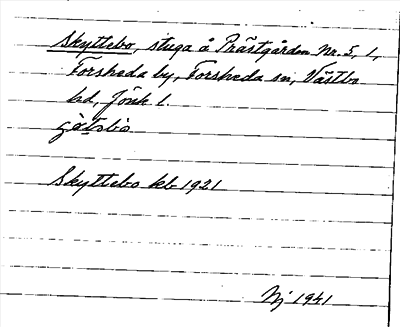 Skyttebo, stuga å Prästgården Nr. 5, 1,
Forsheda by, Forsheda sn, Västbo
hd, Jönk l.
Skyttebo kb 1921
Nj 1941